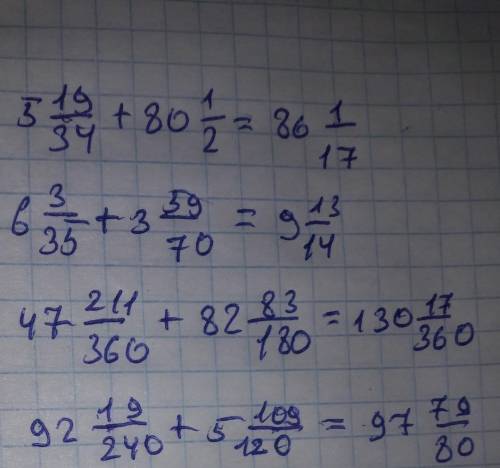 5 19/34 + 80 1/2 = 86 1/17
6 3/35 + 3 59/70 = 9 13/14
47 211/360 + 82 83/180 = 130 17/360
92 19/240 + 5 109/120 = 97 79/80